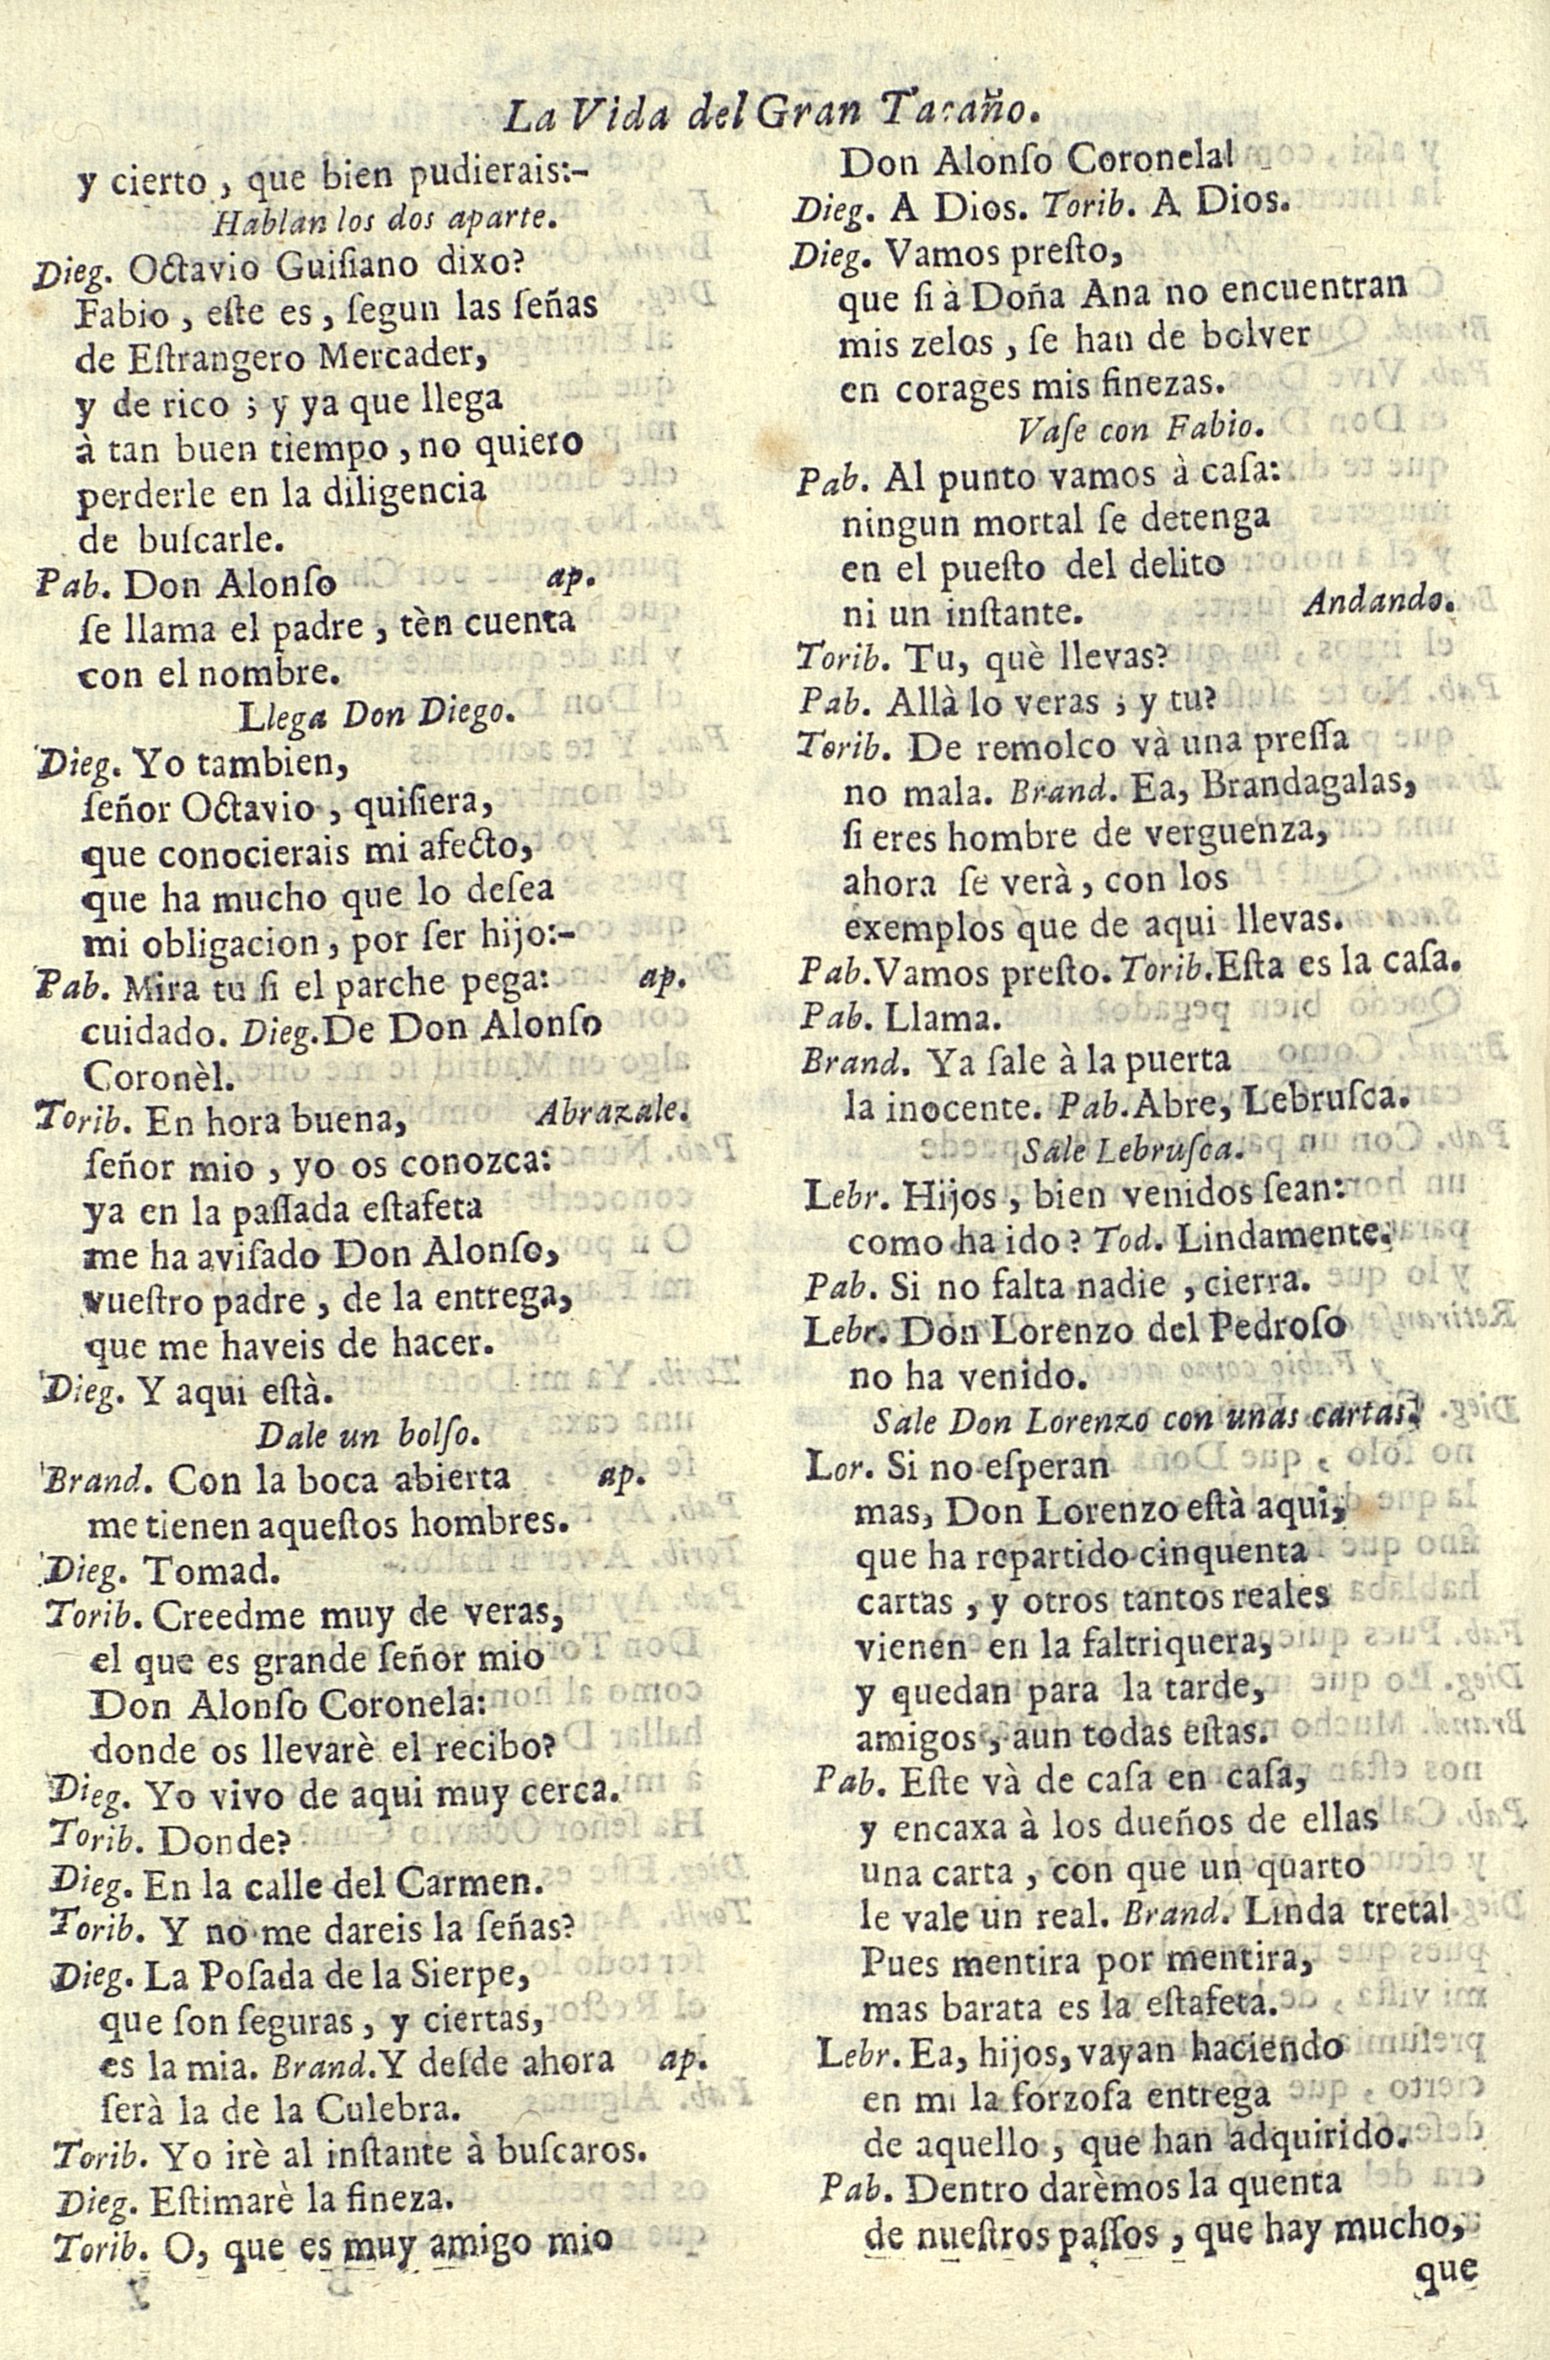 La Vida del Gran Tacaño.
y cierto, que bien pudierais:-
Hablan los dos aparte.
Dieg. Octavio Guiſiano dixo?
Fabio, eſte es, ſegun las ſeñas
de Eſtrangero Mercader,
y de rico; y ya que llega
à tan buen tiempo, no quiero
perderle en la diligencia
de buſcarle.
Pab. Don Alonſo ap.
ſe llama el padre, tèn cuenta
con el nombre.
Llega Don Diego.
Dieg. Yo tambien,
ſeñor Octavio, quiſiera,
que conocierais mi afecto,
que ha mucho que lo deſea
mi obligacion, por ſer hijo:-
Pab. Mira tu ſi el parche pega: ap.
cuidado. Dieg. De Don Alonſo
Coronèl.
Torib. En hora buena, Abrazale.
ſeñor mio, yo os conozca:
ya en la paſſada eſtafeta
me ha aviſado Don Alonſo,
vueſtro padre, de la entrega,
que me haveis de hacer.
Dieg. Y aqui eſtà.
Dale un bolſo.
Brand. Con la boca abierta ap.
me tienen aqueſtos hombres.
Dieg. Tomad.
Torib. Creedme muy de veras,
el que es grande ſeñor mio
Don Alonſo Coronela:
donde os llevarè el recibo?
Dieg. Yo vivo de aqui muy cerca.
Torib. Donde?
Dieg. En la calle del Carmen.
Torib. Y no me dareis la ſeñas?
Dieg. La Poſada de la Sierpe,
que ſon ſeguras, y ciertas,
es la mia. Brand. Y deſde ahora ap.
ſerà la de la Culebra.
Torib. Yo irè al inſtante à buſcaros.
Dieg. Eſtimarè la fineza.
Torib. O, que es muy amigo mio
Don Alonſo Coronela!
Dieg. A Dios. Torib. A Dios.
Dieg. Vamos preſto,
que ſi à Doña Ana no encuentran
mis zelos, ſe han de bolver
en corages mis finezas.
Vaſe con Fabio.
Pab. Al punto vamos à caſa:
ningun mortal ſe detenga
en el pueſto del delito
ni un inſtante. Andando.
Torib. Tu, què llevas?
Pab. Allà lo veras; y tu?
Torib. De remolco và una preſſa
no mala. Brand. Ea, Brandagalas,
ſi eres hombre de verguenza,
ahora ſe verà, con los
exemplos que de aqui llevas.
Pab. Vamos preſto. Torib. Eſta es la caſa.
Pab. Llama.
Brand. Ya ſale à la puerta
la inocente. Pab. Abre, Lebruſca.
Sale Lebruſca.
Lebr. Hijos, bien venidos ſean:
como ha ido? Tod. Lindamente.
Pab. Si no falta nadie, cierra.
Lebr. Don Lorenzo del Pedroſo
no ha venido.
Sale Don Lorenzo con unas cartas.
Lor. Si no eſperan
mas, Don Lorenzo eſtà aqui,
que ha repartido cinquenta
cartas, y otros tantos reales
vienen en la faltriquera,
y quedan para la tarde,
amigos, aun todas eſtas.
Pab. Eſte và de caſa en caſa,
y encaxa à los dueños de ellas
una carta, con que un quarto
le vale un real. Brand. Linda treta!
Pues mentira por mentira,
mas barata es la eſtafeta.
Lebr. Ea, hijos, vayan haciendo
en mi la forzoſa entrega
de aquello, que han adquirido.
Pab. Dentro darèmos la quenta
de nueſtros paſſos, que hay mucho,
que